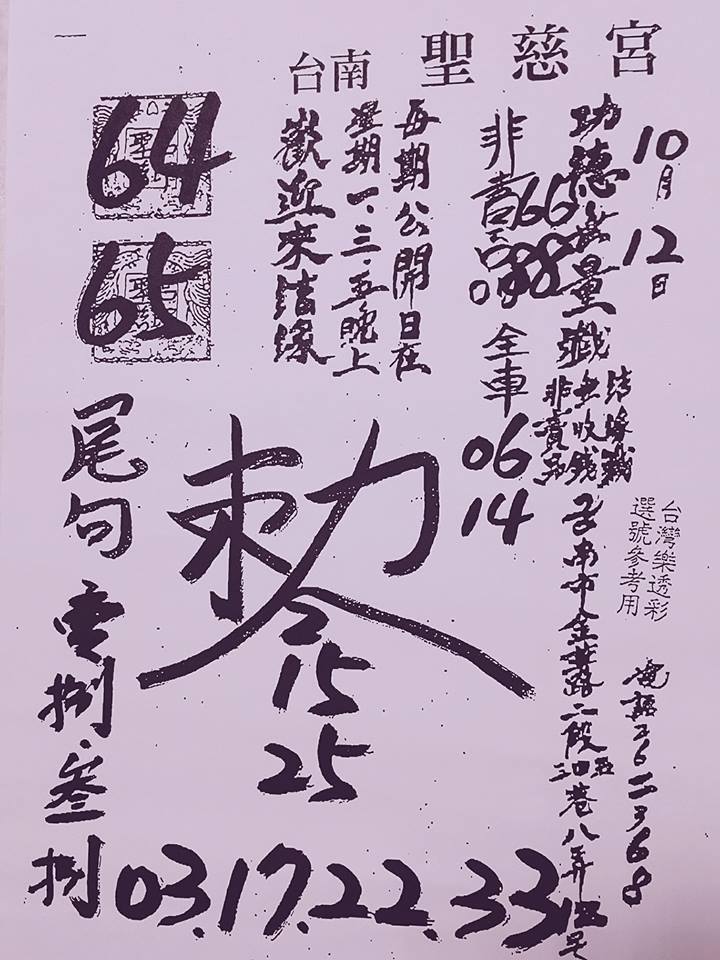 台南 聖慈宮
10月12日
功德無量
結緣
無收錢
非賣品
台南市金華路二段
巷八弄
電話2612368
台灣樂透彩
選號參考用
非賣品
66
88
全車
06
14
每期公開日在
星期一.三.五晚上
歡迎來結緣
64
65
敕
2
15
25
尾勺
壹捌.叁捌
03.17.22.33